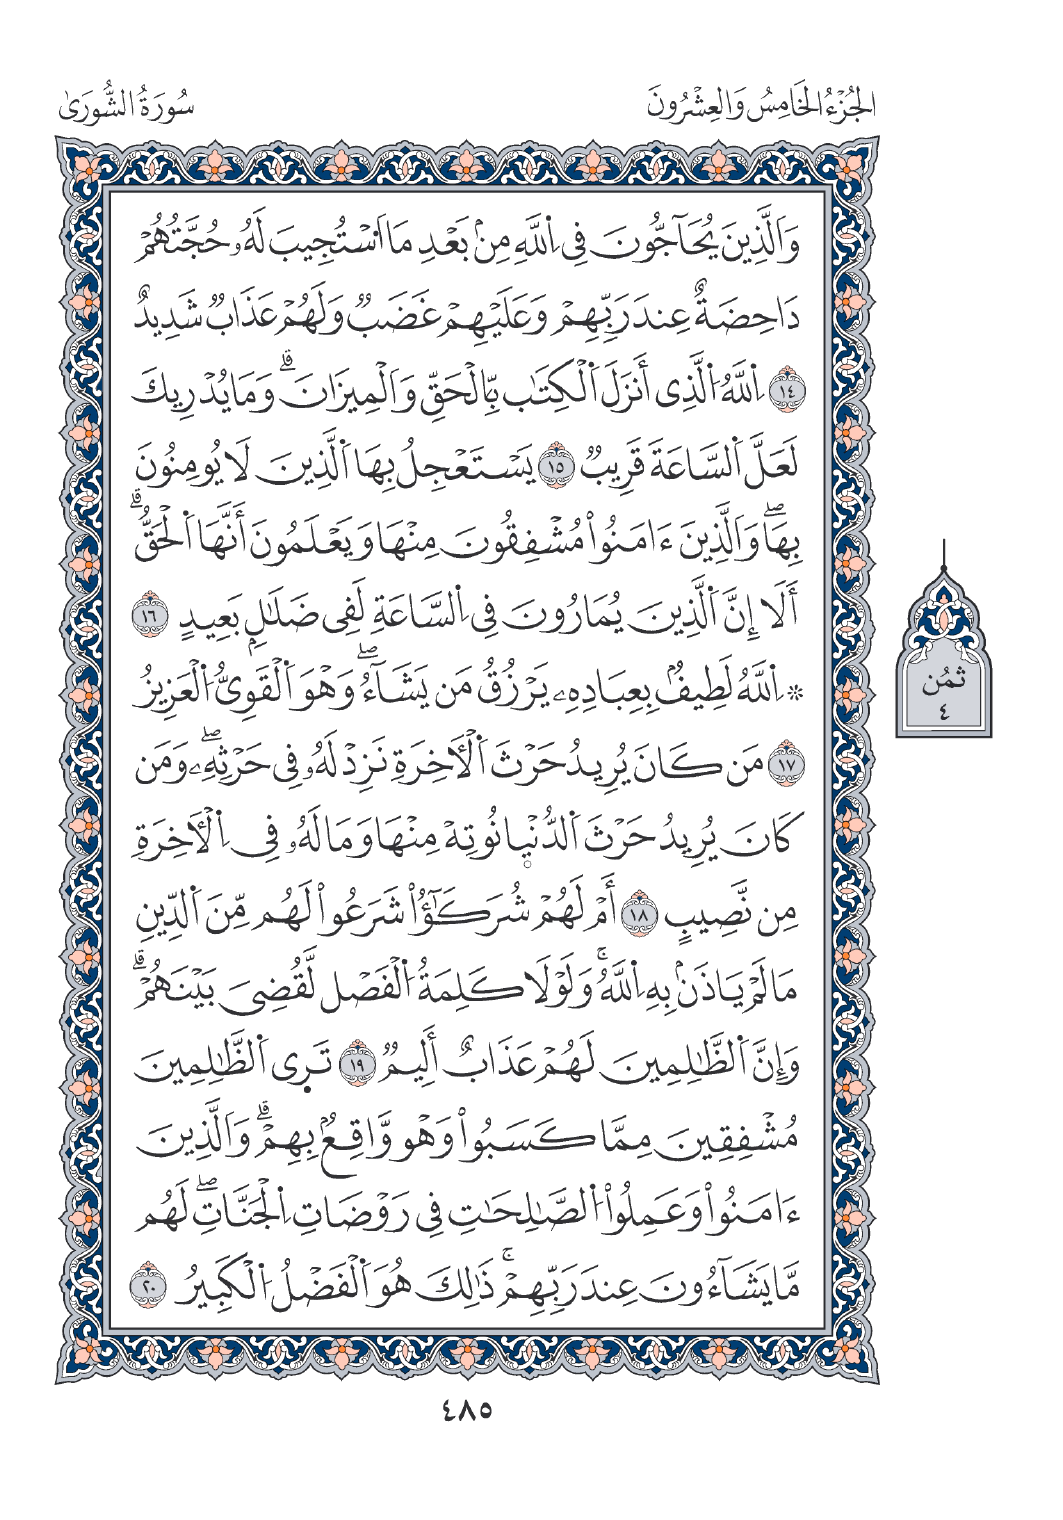 الجُزْءُ الخَامِسُ وَالعِشْرُونَ
سُورَةُ الشُّورَىٰ
وَالَّذِينَ يُحَآجُّونَ فِي اِ۬للَّهِ مِنۢ بَعْدِ مَا اَ۟سْتُجِيبَ لَهُۥ حُجَّتُهُمْ
دَاحِضَةٌ عِندَ رَبِّهِمْ وَعَلَيْهِمْ غَضَبٞ وَلَهُمْ عَذَابٞ شَدِيدٌ
١٤ اِ۬للَّهُ اُ۬لَّذِي أَنزَلَ اَ۬لْكِتَٰب بِّالْحَقِّ وَالْمِيزَانَۗ وَمَا يُدْرِيكَ
لَعَلَّ اَ۬لسَّاعَةَ قَرِيبٞ ١٥ يَسْتَعْجِلُ بِهَا اَ۬لَّذِينَ لَا يُومِنُونَ
بِهَاۖ وَالَّذِينَ ءَامَنُواْ مُشْفِقُونَ مِنْهَا وَيَعْلَمُونَ أَنَّهَا اَ۬لْحَقُّۗ
أَلَا إِنَّ اَ۬لَّذِينَ يُمَارُونَ فِي اِ۬لسَّاعَةِ لَفِي ضَلَٰلِۭ بَعِيدٍ ١٦
۞ اِ۬للَّهُ لَطِيفُۢ بِعِبَادِهِۦ يَرْزُقُ مَن يَشَآءُۖ وَهْوَ اَ۬لْقَوِيُّ اُ۬لْعَزِيزُ
١٧ مَن كَانَ يُرِيدُ حَرْثَ اَ۬لْأٓخِرَةِ نَزِدْ لَهُۥ فِي حَرْثِهِۦۖ وَمَن
كَانَ يُرِيدُ حَرْثَ اَ۬لدُّنْيا نُوتِهْ مِنْهَا وَمَا لَهُۥ فِي اِ۬لْأٓخِرَةِ
مِن نَّصِيبٍ ١٨ أَمْ لَهُمْ شُرَكَٰٓؤُاْ شَرَعُواْ لَهُم مِّنَ اَ۬لدِّينِ
مَا لَمْ يَاذَنۢ بِهِ اِ۬للَّهُۚ وَلَوْلَا كَلِمَةُ اُ۬لْفَصْل لَّقُضِيَ بَيْنَهُمْۗ
وَإِنَّ اَ۬لظَّٰلِمِينَ لَهُمْ عَذَابٌ أَلِيمٞ ١٩ تَرَى اَ۬لظَّٰلِمِينَ
مُشْفِقِينَ مِمَّا كَسَبُواْ وَهْو وَّاقِعُۢ بِهِمْۗ وَالَّذِينَ
ءَامَنُواْ وَعَمِلُواْ اُ۬لصَّٰلِحَٰتِ فِي رَوْضَاتِ اِ۬لْجَنَّاتِۖ لَهُم
مَّا يَشَآءُونَ عِندَ رَبِّهِمْۚ ذَٰلِكَ هُوَ اَ۬لْفَضْلُ اُ۬لْكَبِيرُ ٢٠
ثُمُن
٤
٤٨٥